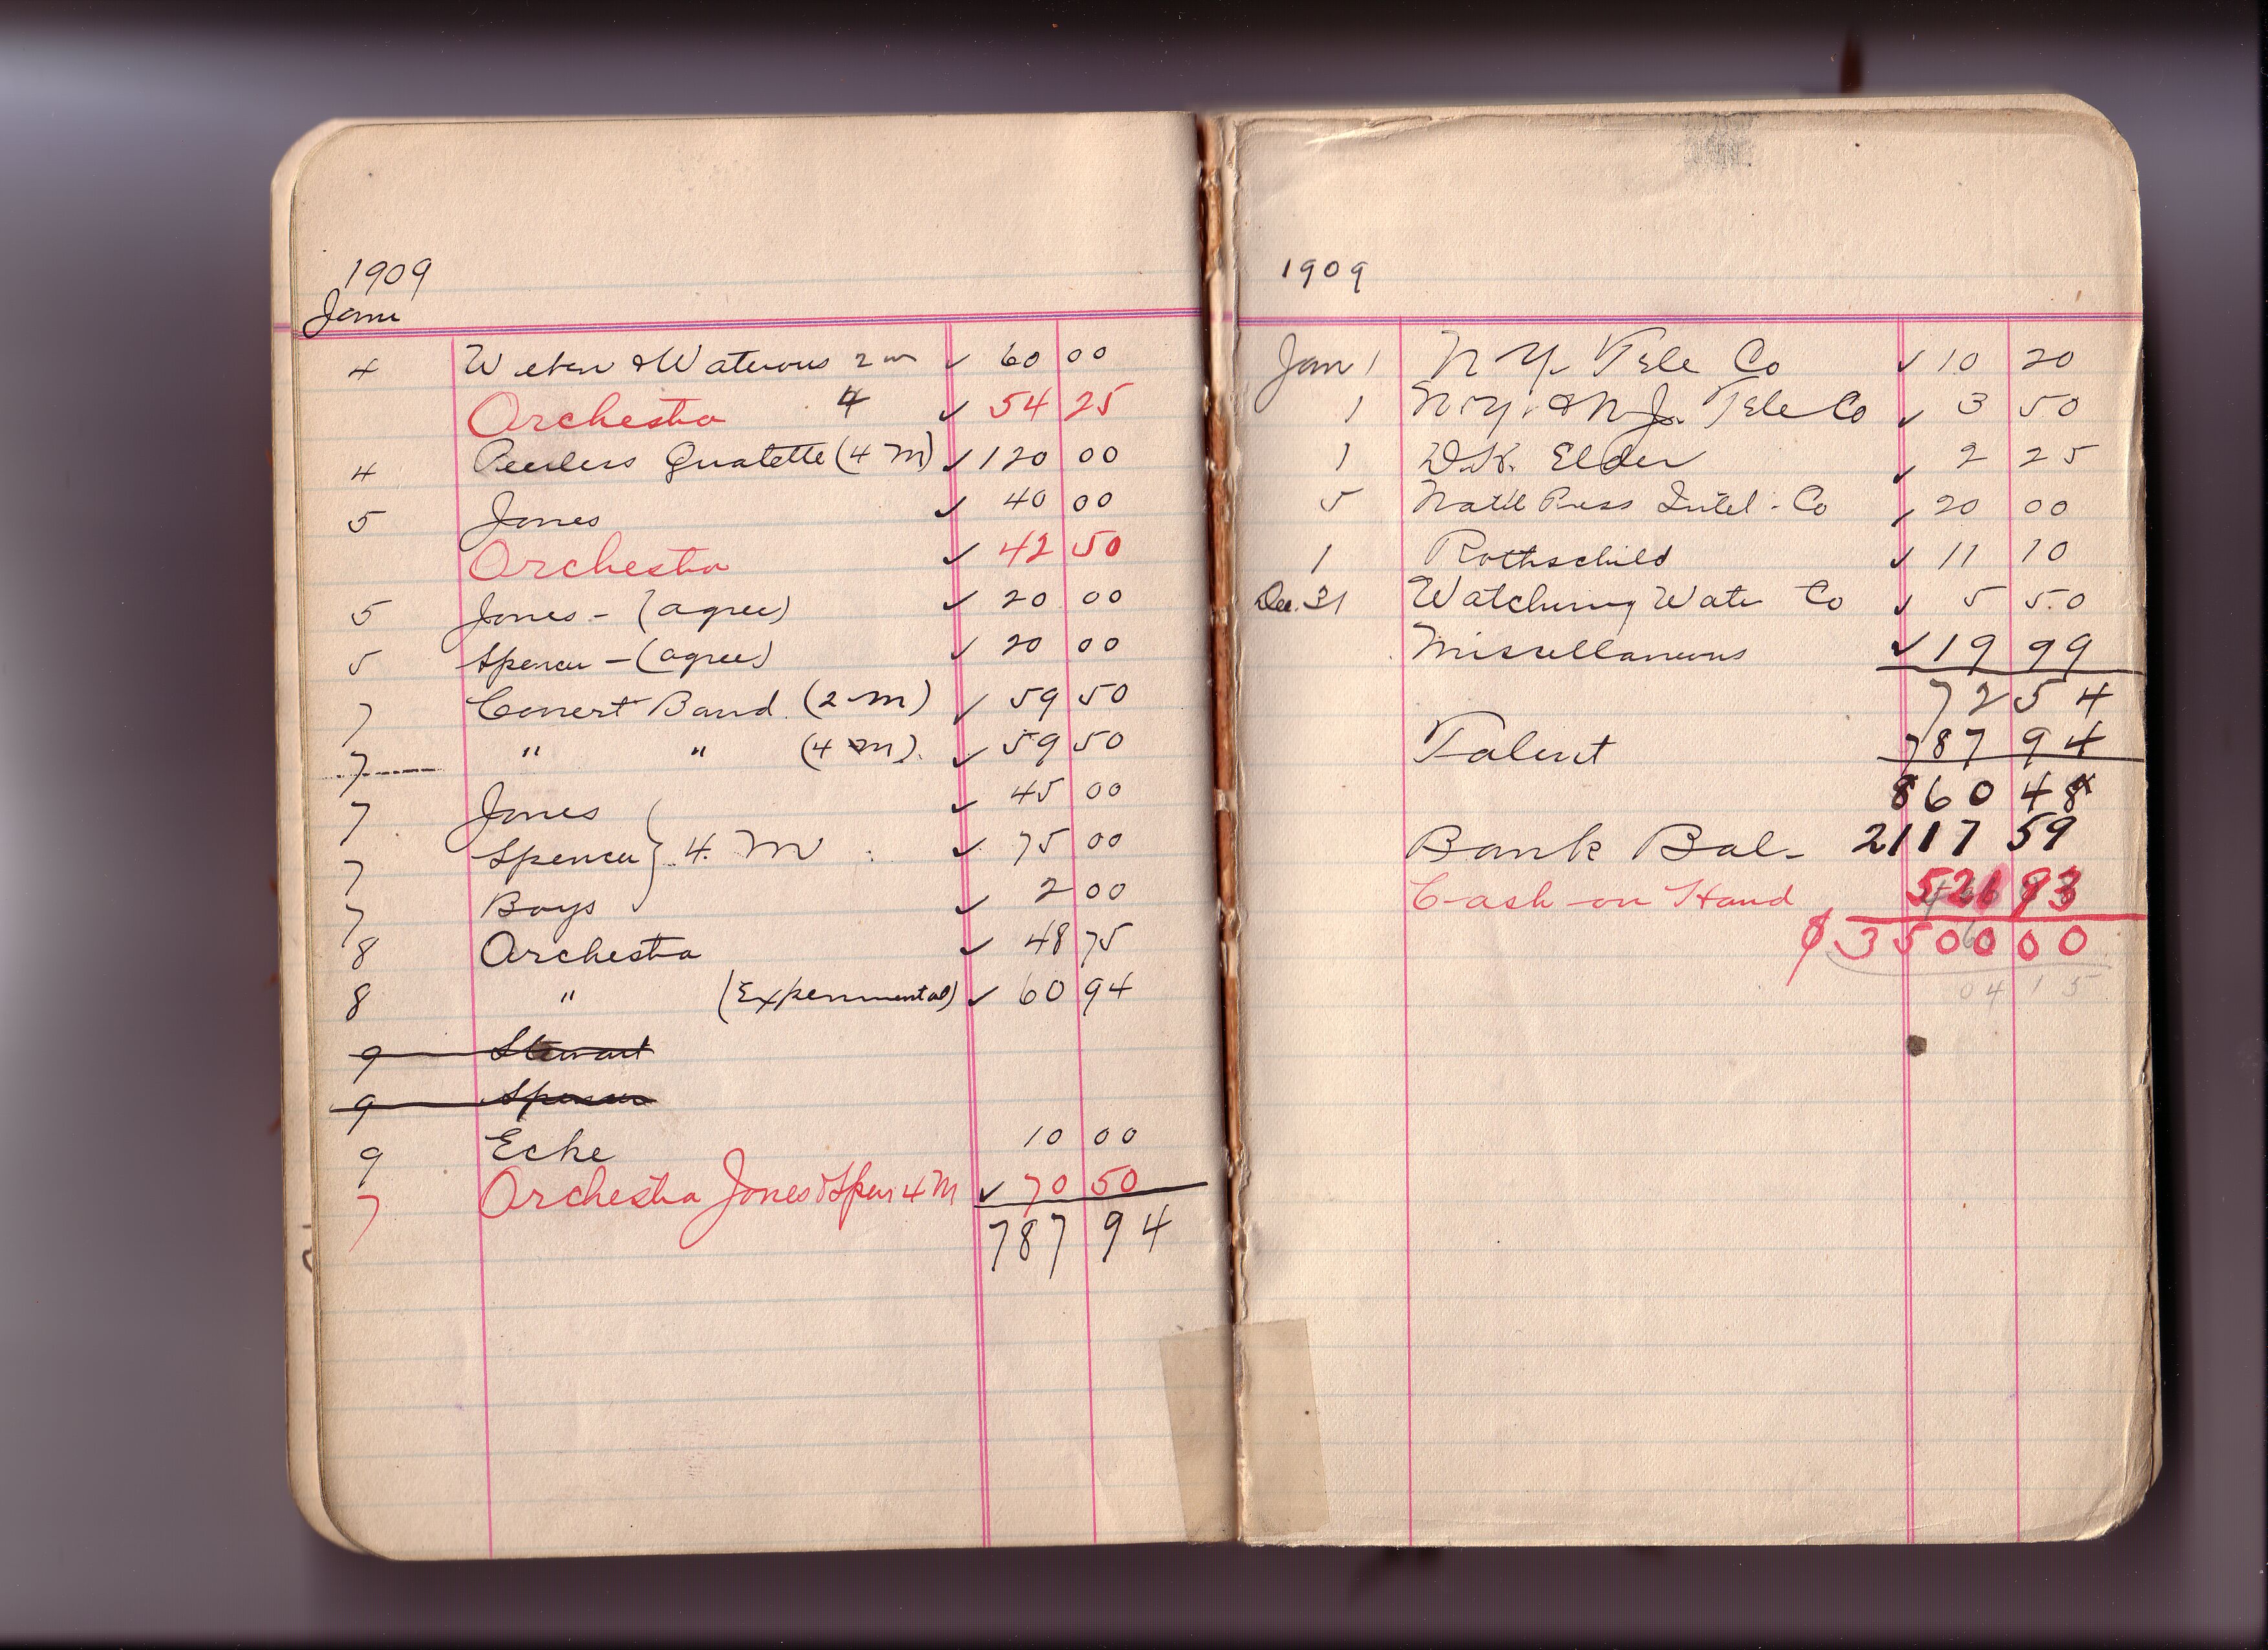 1909
Jany
4 Weber & Waterous 2 m ✓ 60 00
Orchestra 4 ✓ 54 25
4 Peerless Quatette (4 M) ✓ 120 00
5 Jones ✓ 40 00
Orchestra ✓ 42 50
5 Jones - (agree) ✓ 20 00
5 Spencer - (agree) ✓ 20 00
7 Concert Band (2 M) ✓ 59 50
7 " " (4 M). ✓ 59 50
7 Jones ✓ 45 00
7 Spencer } 4. M ✓ 75 00
7 Boys ✓ 2 00
8 Orchestra ✓ 48 75
8 " (Experimental) ✓ 60 94
9 Stewart
9 Spencer
9 Ecke 10 00
7 Orchestra Jones & Spen 4 M ✓ 70 50
787 94
1909
Jan 1 N Y. Tele Co ✓ 10 20
1 N.Y. & N.J. Tele Co ✓ 3 50
1 D.K. Elder ✓ 2 25
5 Nat'l Press Intel. Co ✓ 20 00
1 Rothschild ✓ 11 10
Dec. 31 Watchung Water Co ✓ 5 50
Miscellaneous ✓ 19 99
72 54
Talent 787 94
860 48
Bank Bal- 2117 59
Cash on Hand 521 93
$ 3500 00
04 15